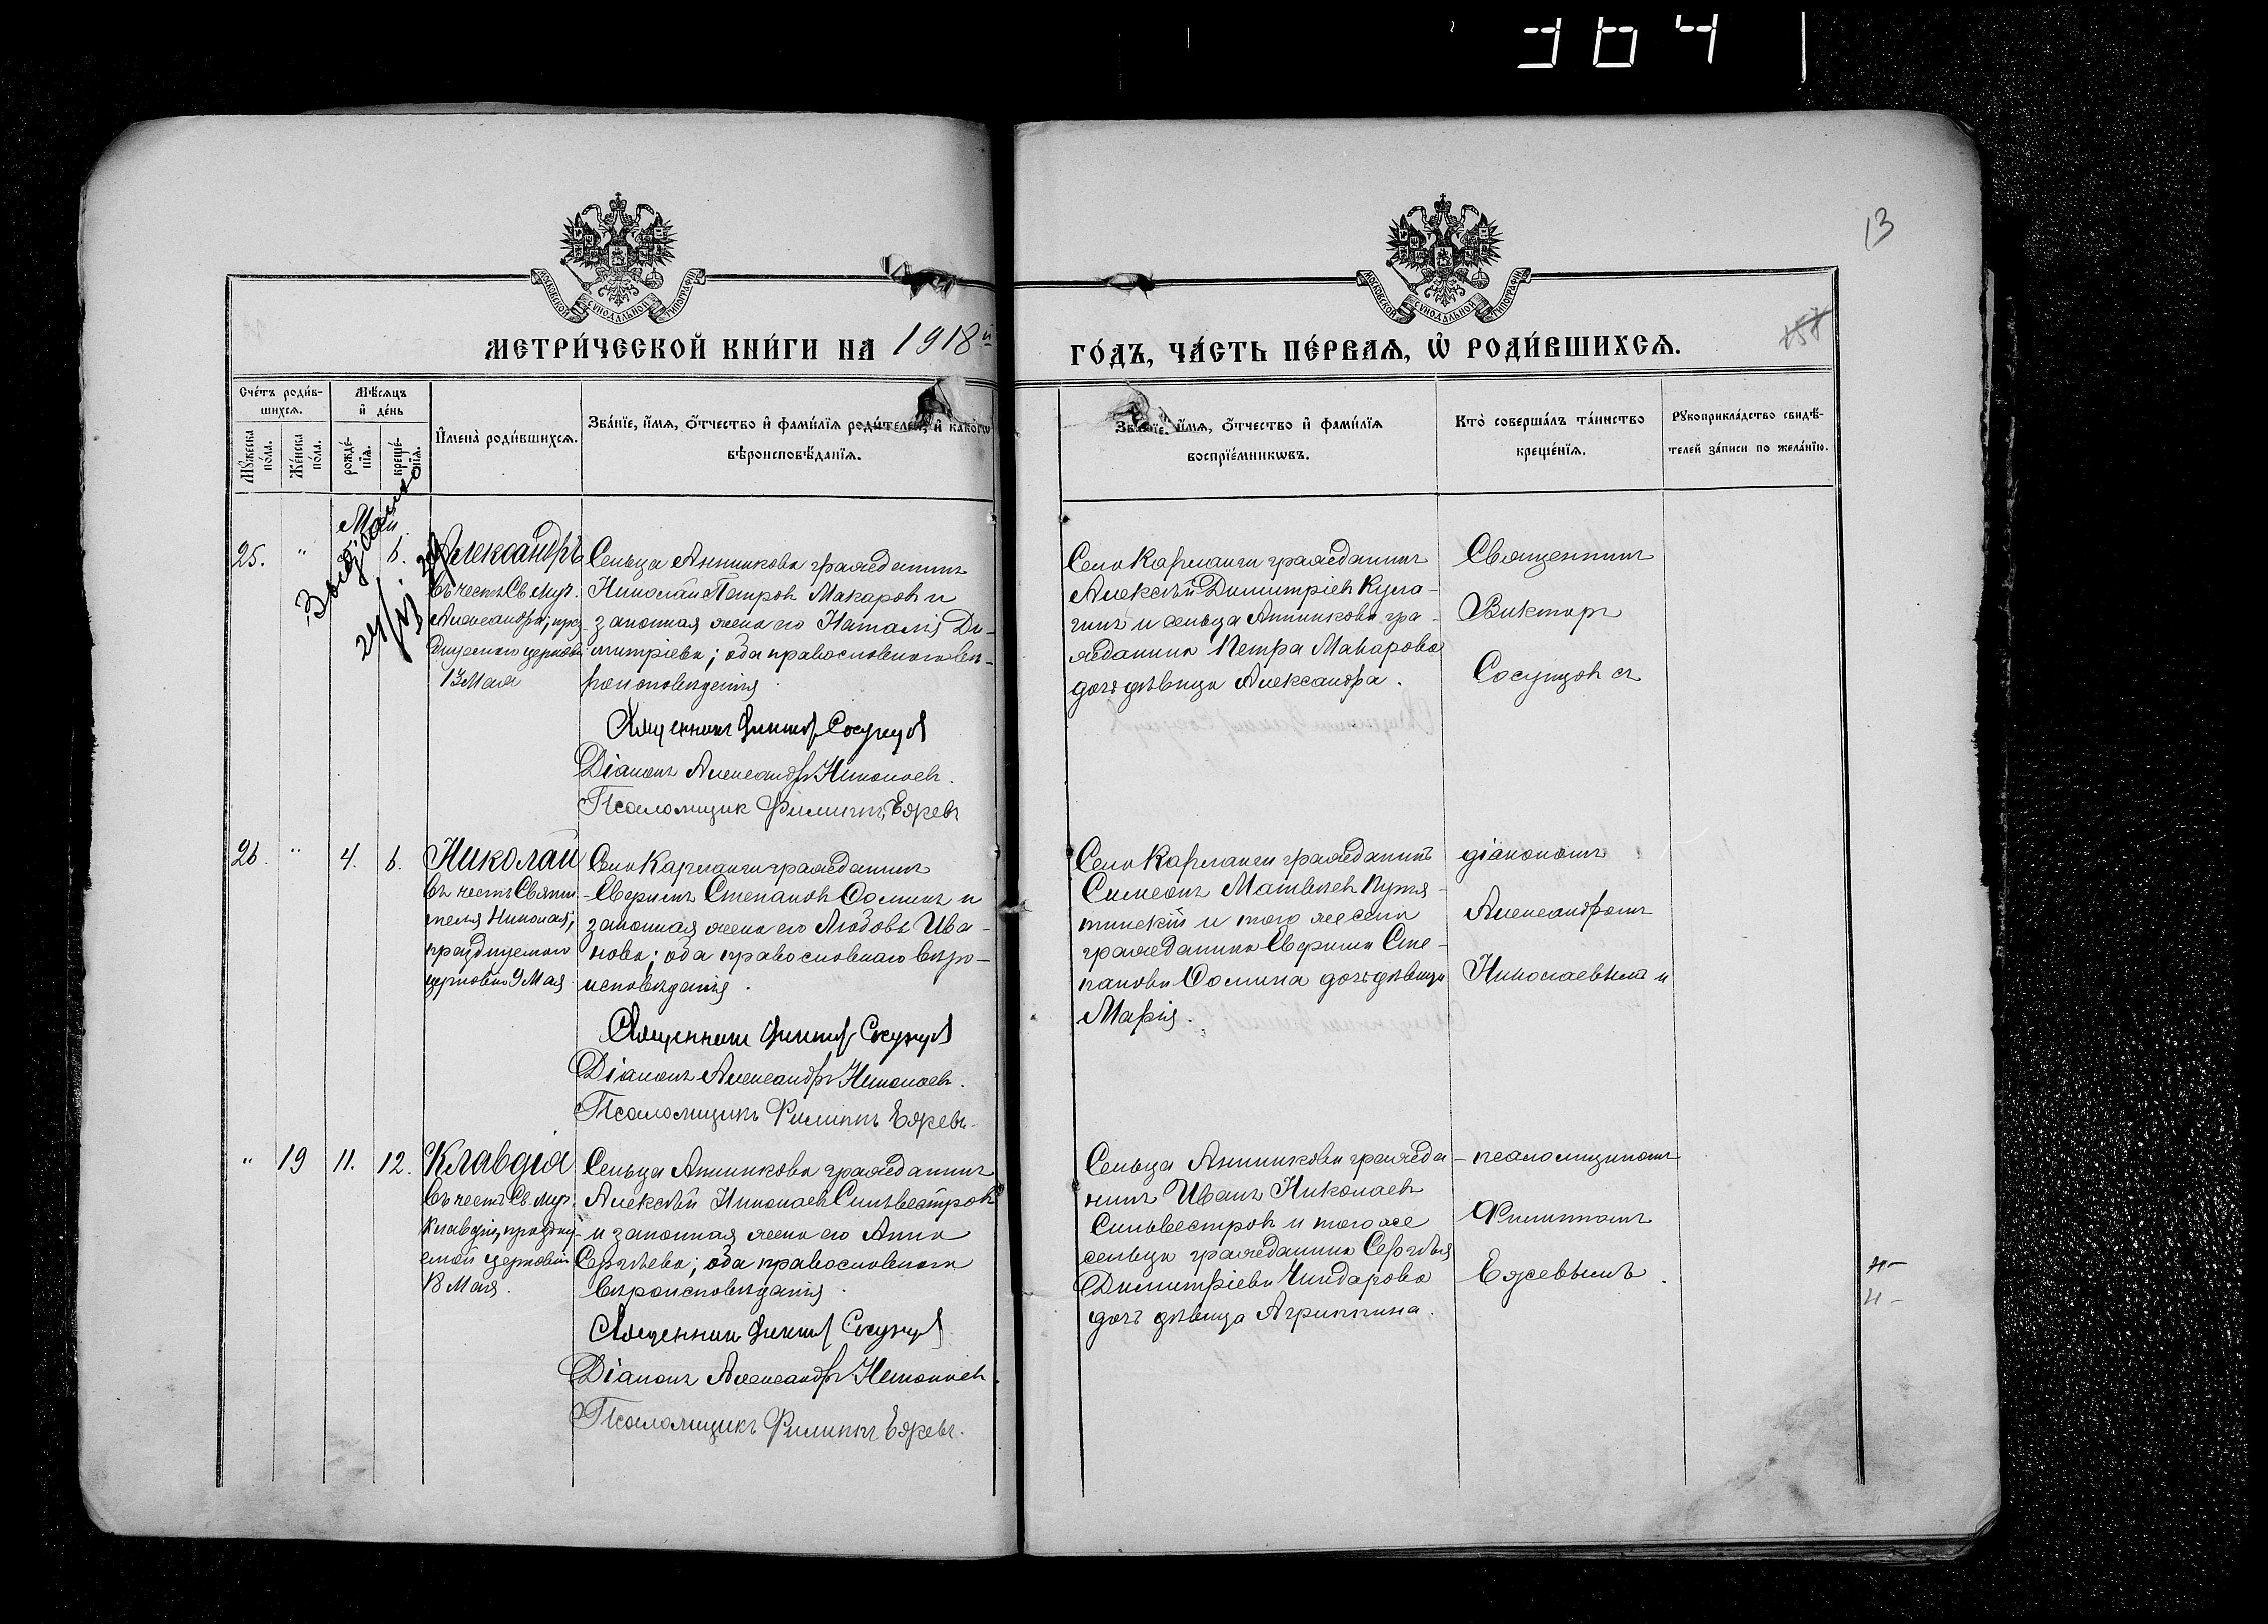 364
13
МОСКОВСКОЙ СУНОДАЛЬНОЙ ТИПОГРАФІИ
МОСКОВСКОЙ СУНОДАЛЬНОЙ ТИПОГРАФІИ
МЕТРИ́ЧЕСКОЙ КНИ́ГИ НА 1918 й
ГО́ДЪ, ЧА́СТЬ ПЕ́РВАѦ, Ѡ҆ РОДИ́ВШИХСѦ.
157
Сче́тъ роди́в-
шихсѧ.
Мѣ́сѧцъ
и҆ де́нь
Мꙋ́жеска
по́ла.
Же́нска
по́ла.
рожде́-
нїѧ.
креще́-
нїѧ.
И҆мена̀ роди́вшихсѧ.
Зва́нїе, и҆́мѧ, ѻ҆́тчество и҆ фами́лїѧ роди́телей, и҆ како́гѡ
вѣроисповѣ́данїѧ.
Зва́нїе, и҆́мѧ, ѻ҆́тчество и҆ фами́лїѧ
воспрїе́мникѡвъ.
Кто̀ соверша́лъ та́инство
креще́нїѧ.
Рꙋкоприкла́дство свидѣ́-
телей за́писи по жела́нїю.
Май
25. " 6. Александръ
въ честь Св. муч.
Александра, праз-
днуемаго церковью
13 Мая
Сельца Анникова гражданинъ
Николай Петровъ Макаровъ и
законная жена его Наталія Ди-
митріева; оба православнаго вѣ-
роисповѣданія.
Священникъ Викторъ Сосунцовъ
Діаконъ Александръ Николаевъ.
Псаломщик Филиппъ Ежевъ
Село Кармалы гражданинъ
Алексѣй Димитріевъ Кула-
гинъ и сельца Анникова гра-
жданина Петра Макарова
дочь дѣвица Александра.
Священникъ
Викторъ
Сосунцовъ съ
26. " 4. 6. Николай
въ честь Святи-
теля Николая,
празднуемаго
церковью 9 Мая
Село Кармалы гражданинъ
Евфимъ Степановъ Фоминъ и
законная жена его Любовь Ива-
нова; оба православнаго вѣро-
исповѣданія.
Священникъ Викторъ Сосунцовъ
Діаконъ Александръ Николаевъ.
Псаломщикъ Филиппъ Ежевъ.
Село Кармалы гражданинъ
Симеонъ Матвѣевъ Путя-
тинскій и того же села
гражданина Евфима Сте-
панова Фомина дочь дѣвица
Марія.
діакономъ
Александромъ
Николаевымъ и
" 19 11. 12. Клавдія
въ честь Св. муч.
Клавдіи, праздну-
емой церковью
18 Мая.
Сельца Анникова гражданинъ
Алексѣй Николаевъ Сильвестровъ
и законная жена его Анна
Сергѣева; оба православнаго
вѣроисповѣданія.
Священникъ Викторъ Сосунцовъ
Діаконъ Александръ Николаевъ.
Псаломщикъ Филиппъ Ежевъ.
Сельца Анникова гражда-
нинъ Иванъ Николаевъ
Сильвестровъ и того же
сельца гражданина Сергѣя
Димитріева Чиндарова
дочь дѣвица Агриппина.
псаломщикомъ
Филиппомъ
Ежевымъ.